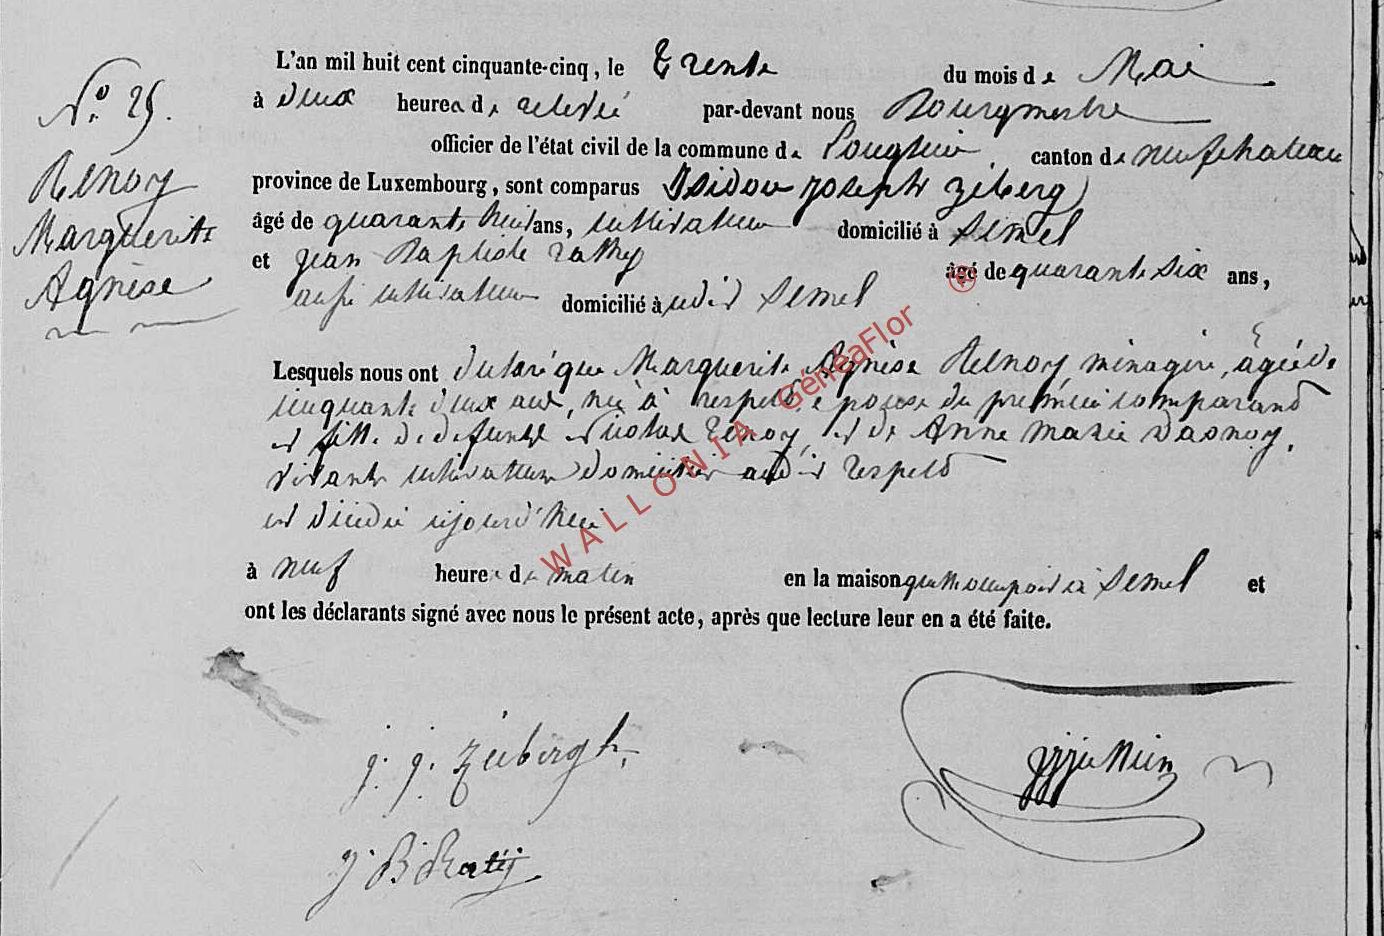 L'an mil huit cent cinquante-cinq, le Trente du mois de Mai
N° 25.
à deux heures de relevée par-devant nous Bourgmestre
officier de l'état civil de la commune de Longlier, canton de neufchateau
Renoy
province de Luxembourg, sont comparus Isidore joseph Zeberg
Marguerite
âgé de quarante huit ans, cultivateur domicilié à Semel
Agnèse
et jean Baptiste Rathy âgé de quarante six ans,
aussi cultivateur domicilié audit Semel
Lesquels nous ont déclaré que Marguerite Agnèse Renoy ménagère, âgée de
cinquante deux ans, née à respelt, épouse du premier comparant
et fille de defunts Nicolas Renoy, et de Anne Marie Dasnoy,
vivants cultivateurs domiciliés audit respelt
est décédée aujourd'hui
à neuf heures du matin en la maison qu'elle occupoit à Semel et
ont les déclarants signé avec nous le présent acte, après que lecture leur en a été faite.
j. j. Zeibergh
j B Raty
WALLONIA GénéaFlor ®